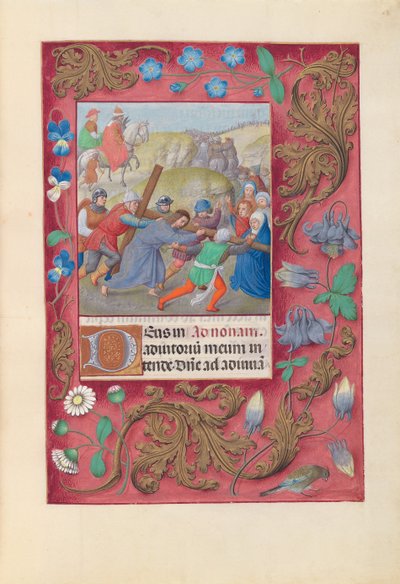 Deus in Ad nonam.
adiutoriū meum in
tende. Dñe ad adiuuā